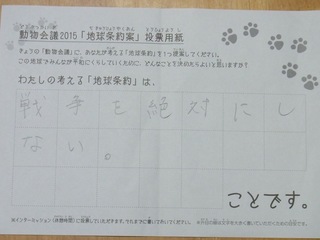 動物会議2015「地球条約案」投票用紙
きょうの「動物会議」に、あなたが考える「地球条約」を1つ提案してください。
この地球でみんなが平和にくらしていくために、どんなことを決めたらよいと思いますか?
わたしの考える「地球条約」は、
戦争を絶対にし
ない。
ことです。